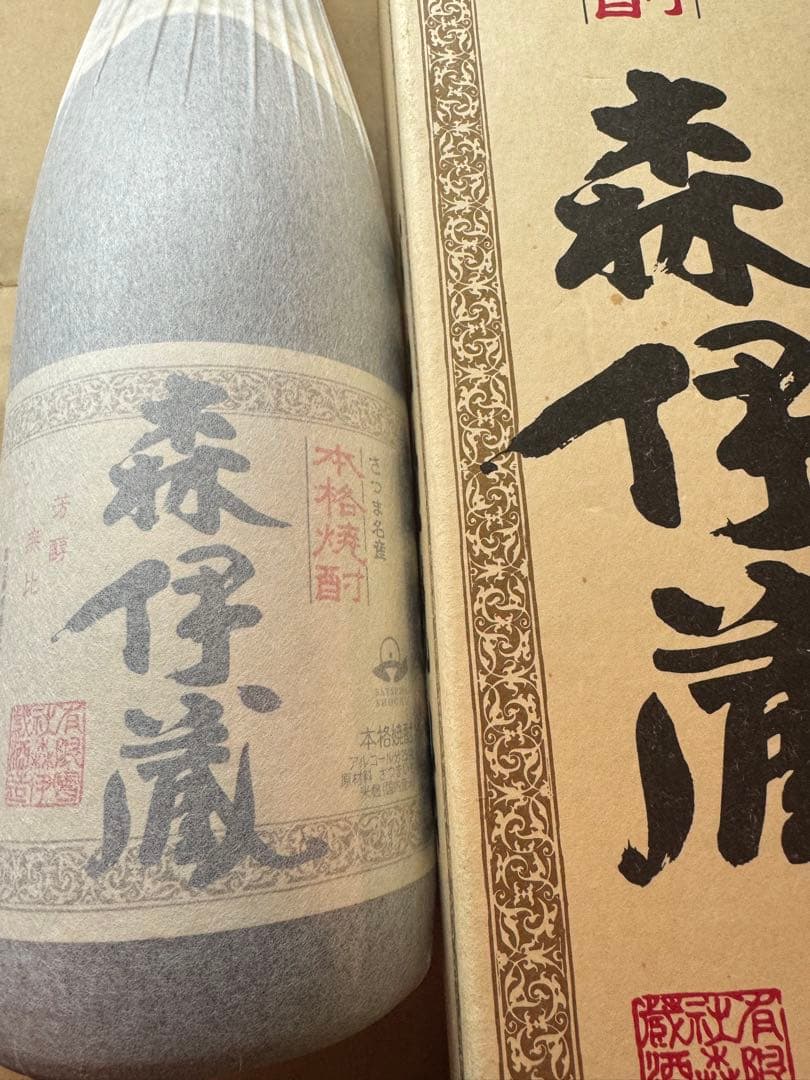 さつま名産
本格焼酎
森伊蔵
芳醇
無比
有限会
社森伊
蔵酒造
SATSUMA
SHOCHU
本格焼酎
アルコール分
原材料 さつまいも
米麹(国内産米
酎
森伊蔵
有限
社森
蔵酒